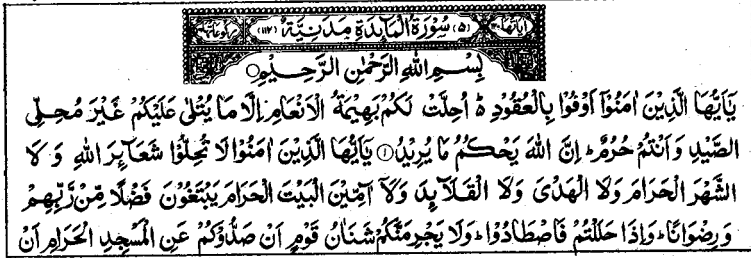 اٰيَاتُهَا ١٢٠ (٥) سُوْرَةُ الْمَآئِدَةِ مَدَنِيَّةٌ (١١٢) رُكُوْعَاتُهَا
بِسْمِ اللّٰهِ الرَّحْمٰنِ الرَّحِيْمِ
يٰٓاَيُّهَا الَّذِيْنَ اٰمَنُوْٓا اَوْفُوْا بِالْعُقُوْدِ ؕ اُحِلَّتْ لَكُمْ بَهِيْمَةُ الْاَنْعَامِ اِلَّا مَا يُتْلٰى عَلَيْكُمْ غَيْرَ مُحِلِّى
الصَّيْدِ وَاَنْتُمْ حُرُمٌ ؕ اِنَّ اللّٰهَ يَحْكُمُ مَا يُرِيْدُ ﴿١﴾ يٰٓاَيُّهَا الَّذِيْنَ اٰمَنُوْا لَا تُحِلُّوْا شَعَآئِرَ اللّٰهِ وَلَا
الشَّهْرَ الْحَرَامَ وَلَا الْهَدْىَ وَلَا الْقَلَآئِدَ وَلَآ اٰمِّيْنَ الْبَيْتَ الْحَرَامَ يَبْتَغُوْنَ فَضْلًا مِّنْ رَّبِّهِمْ
وَرِضْوَانًا ؕ وَاِذَا حَلَلْتُمْ فَاصْطَادُوْا ؕ وَلَا يَجْرِمَنَّكُمْ شَنَاٰنُ قَوْمٍ اَنْ صَدُّوْكُمْ عَنِ الْمَسْجِدِ الْحَرَامِ اَنْ